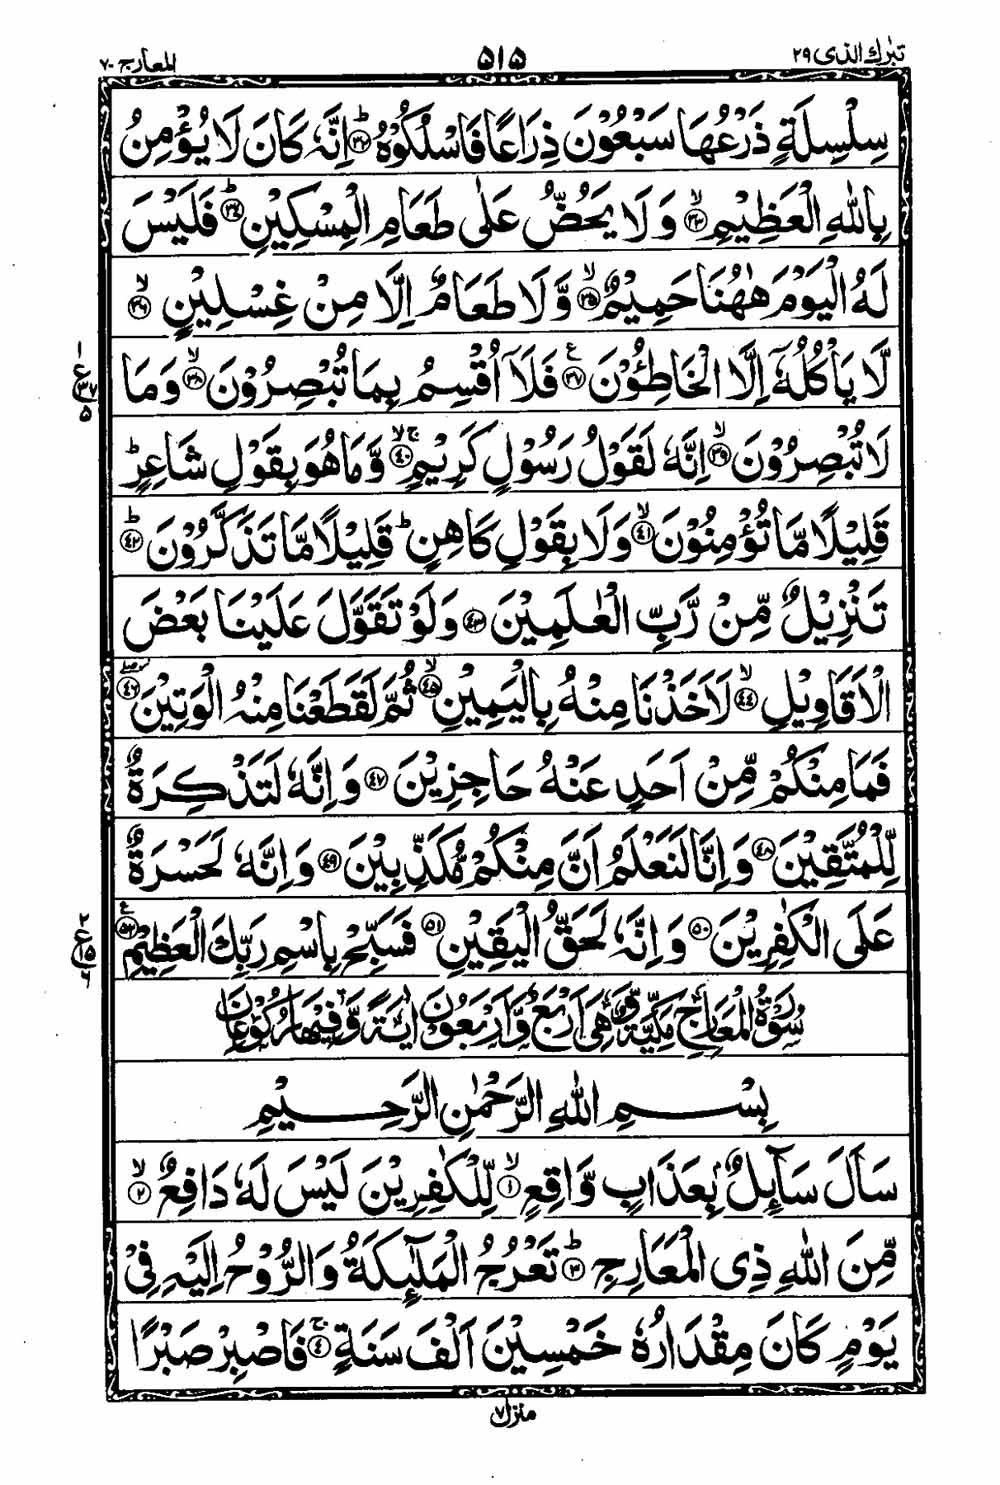 تبرك الذی ۲۹ ۵۱۵ المعارج ۷۰
سِلْسِلَةٍ ذَرْعُهَا سَبْعُوْنَ ذِرَاعًا فَاسْلُكُوْهُ ؕ﴿۳۲﴾ اِنَّهٗ كَانَ لَا يُؤْمِنُ
بِاللّٰهِ الْعَظِيْمِ ۙ﴿۳۳﴾ وَلَا يَحُضُّ عَلٰى طَعَامِ الْمِسْكِيْنِ ؕ﴿۳۴﴾ فَلَيْسَ
لَهُ الْيَوْمَ هٰهُنَا حَمِيْمٌ ۙ﴿۳۵﴾ وَّلَا طَعَامٌ اِلَّا مِنْ غِسْلِيْنٍ ۙ﴿۳۶﴾
لَّا يَاْكُلُهٗۤ اِلَّا الْخَاطِـُٔوْنَ ﴿۳۷﴾ ع فَلَاۤ اُقْسِمُ بِمَا تُبْصِرُوْنَ ۙ﴿۳۸﴾ وَمَا
۱ ع ۳۷ ۵
لَا تُبْصِرُوْنَ ۙ﴿۳۹﴾ اِنَّهٗ لَقَوْلُ رَسُوْلٍ كَرِيْمٍ ۚۙ﴿۴۰﴾ وَّمَا هُوَ بِقَوْلِ شَاعِرٍ ؕ
قَلِيْلًا مَّا تُؤْمِنُوْنَ ۙ﴿۴۱﴾ وَلَا بِقَوْلِ كَاهِنٍ ؕ قَلِيْلًا مَّا تَذَكَّرُوْنَ ؕ﴿۴۲﴾
تَنْزِيْلٌ مِّنْ رَّبِّ الْعٰلَمِيْنَ ﴿۴۳﴾ وَلَوْ تَقَوَّلَ عَلَيْنَا بَعْضَ
الْاَقَاوِيْلِ ۙ﴿۴۴﴾ لَاَخَذْنَا مِنْهُ بِالْيَمِيْنِ ۙ﴿۴۵﴾ ثُمَّ لَقَطَعْنَا مِنْهُ الْوَتِيْنَ ﴿۴۶﴾
فَمَا مِنْكُمْ مِّنْ اَحَدٍ عَنْهُ حَاجِزِيْنَ ﴿۴۷﴾ وَاِنَّهٗ لَتَذْكِرَةٌ
لِّلْمُتَّقِيْنَ ﴿۴۸﴾ وَاِنَّا لَنَعْلَمُ اَنَّ مِنْكُمْ مُّكَذِّبِيْنَ ﴿۴۹﴾ وَاِنَّهٗ لَحَسْرَةٌ
عَلَى الْكٰفِرِيْنَ ﴿۵۰﴾ وَاِنَّهٗ لَحَقُّ الْيَقِيْنِ ﴿۵۱﴾ فَسَبِّحْ بِاسْمِ رَبِّكَ الْعَظِيْمِ ﴿۵۲﴾ ع
۲ ع ۱۵ ۶
سُوْرَةُ الْمَعَارِجِ مَكِّيَّةٌ وَّهِيَ اَرْبَعٌ وَّاَرْبَعُوْنَ اٰيَةً وَّفِيْهَا رُكُوْعَانِ
بِسْمِ اللّٰهِ الرَّحْمٰنِ الرَّحِيْمِ
سَاَلَ سَآىِٕلٌۢ بِعَذَابٍ وَّاقِعٍ ۙ﴿۱﴾ لِّلْكٰفِرِيْنَ لَيْسَ لَهٗ دَافِعٌ ۙ﴿۲﴾
مِّنَ اللّٰهِ ذِى الْمَعَارِجِ ؕ﴿۳﴾ تَعْرُجُ الْمَلٰٓىِٕكَةُ وَالرُّوْحُ اِلَيْهِ فِىْ
يَوْمٍ كَانَ مِقْدَارُهٗ خَمْسِيْنَ اَلْفَ سَنَةٍ ۚ﴿۴﴾ فَاصْبِرْ صَبْرًا
منزل ۷